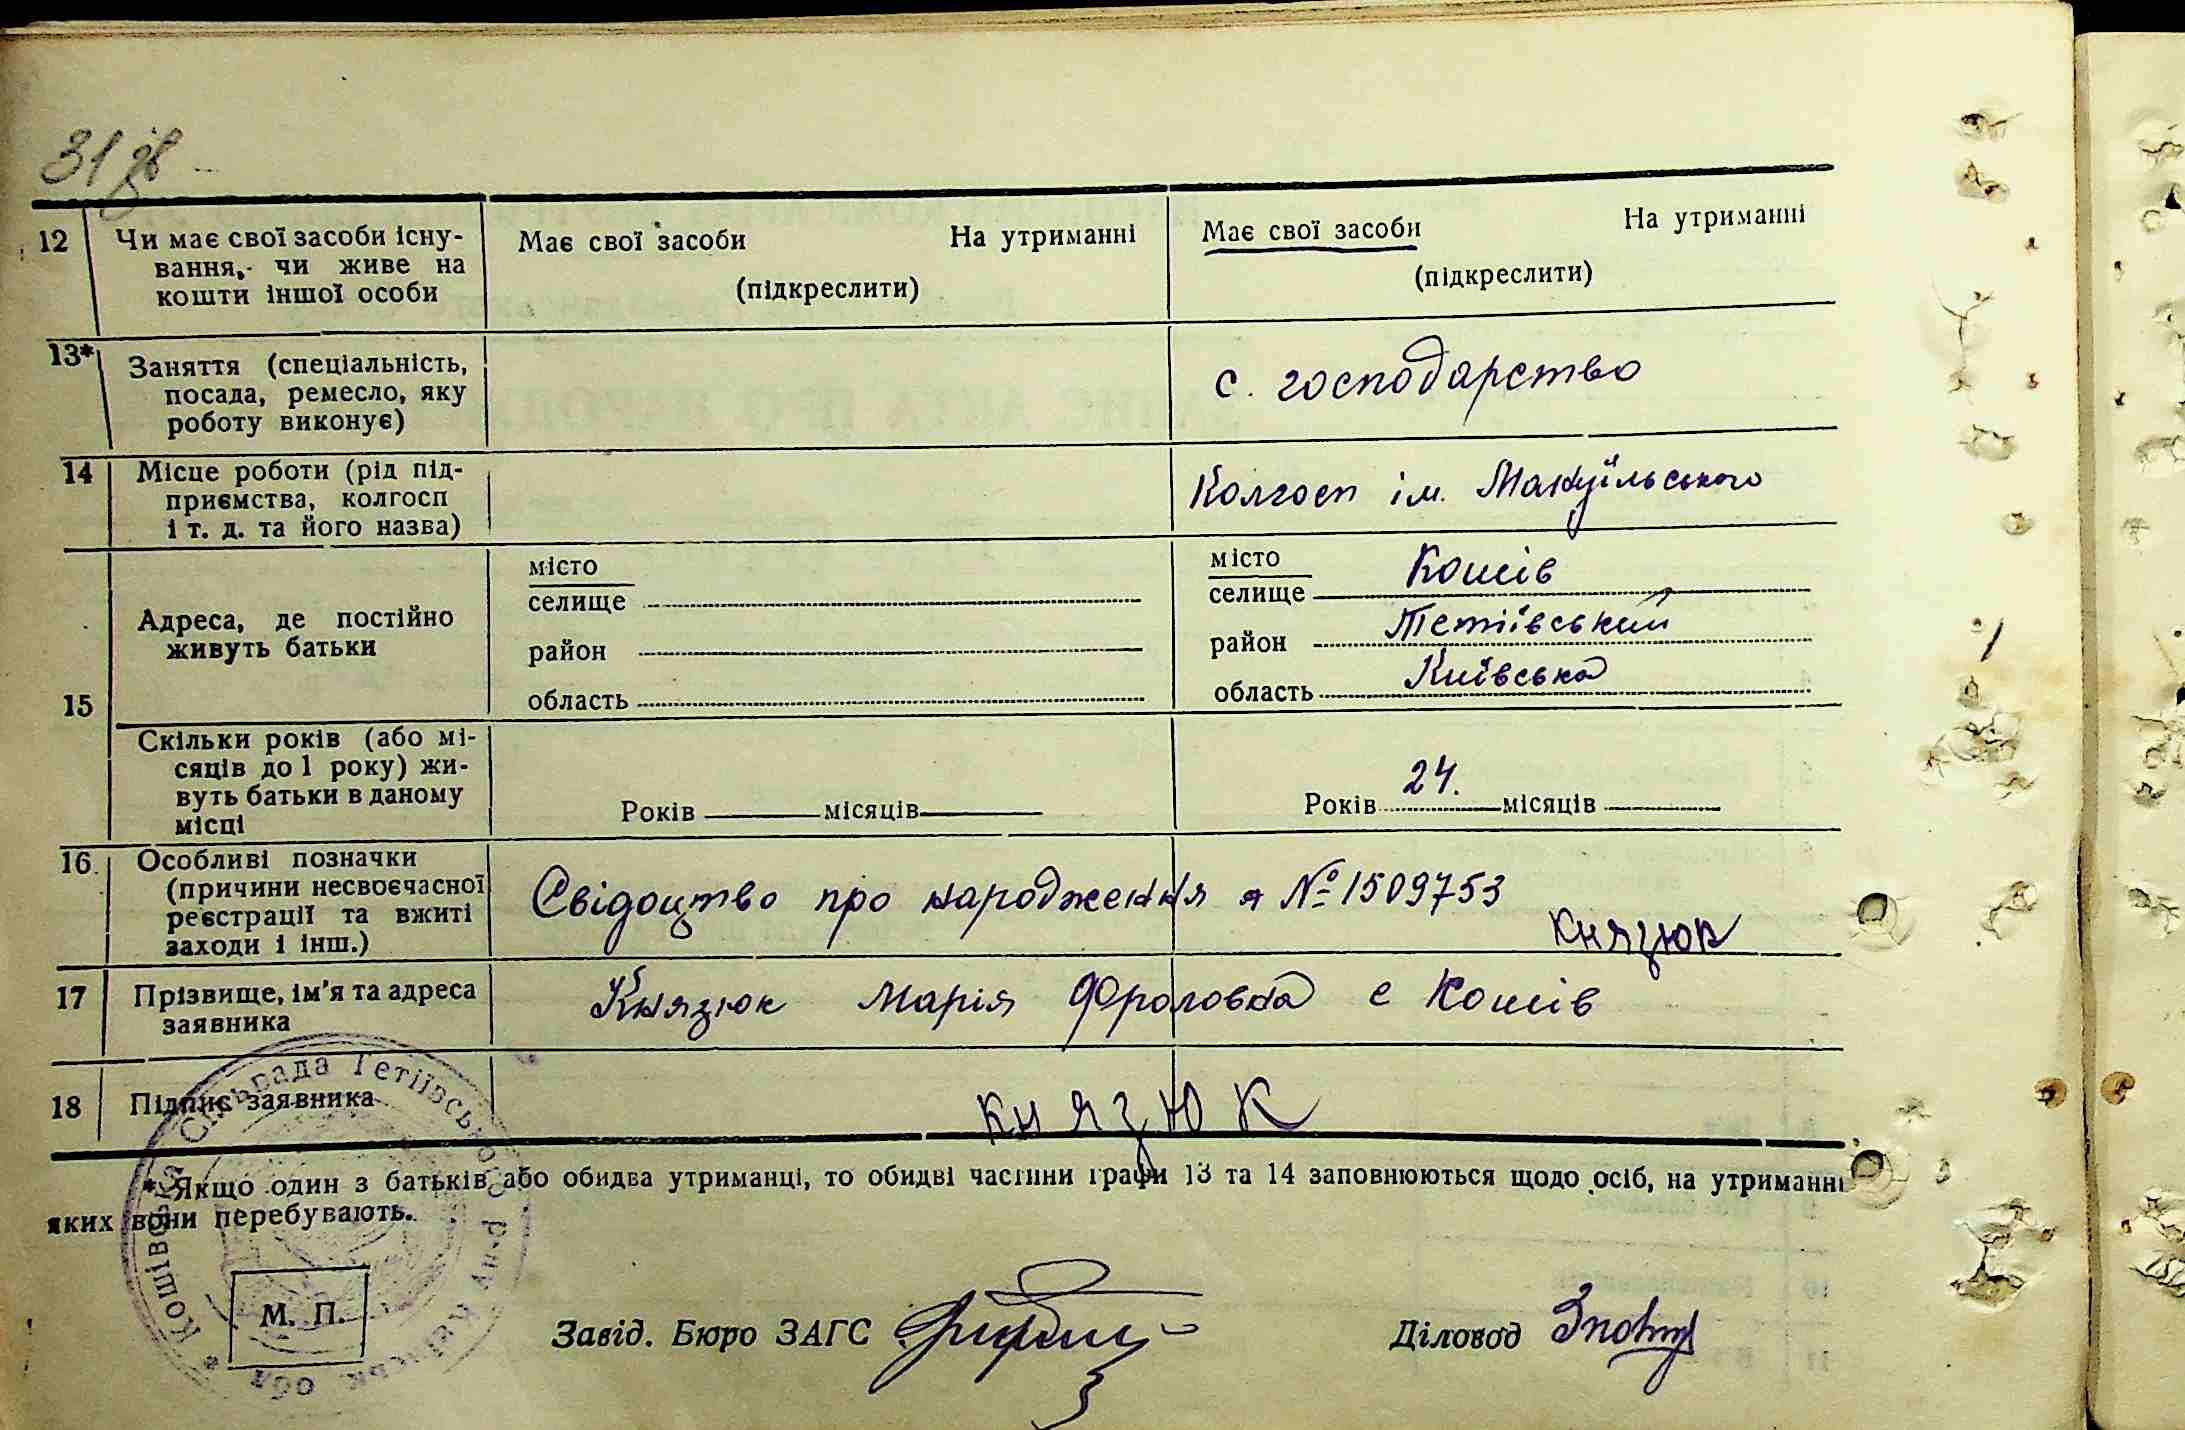 31 зв
12 Чи має свої засоби існу-
вання, чи живе на
кошти іншої особи
Має свої засоби На утриманні
(підкреслити)
Має свої засоби На утриманні
(підкреслити)
13* Заняття (спеціальність,
посада, ремесло, яку
роботу виконує)
с. господарство
14 Місце роботи (рід під-
приємства, колгосп
і т. д. та його назва)
Колгосп ім. Мануїльського
15
Адреса, де постійно
живуть батьки
місто
селище
район
область
місто
селище Кошів
район Тетіївський
область Київська
Скільки років (або мі-
сяців до 1 року) жи-
вуть батьки в даному
місці
Років місяців
Років 24. місяців
16. Особливі позначки
(причини несвоєчасної
реєстрації та вжиті
заходи і інш.)
Свідоцтво про народження я № 1509753
Князюк
17 Прізвище, ім'я та адреса
заявника
Князюк Марія Фроловна с Кошів
18 Підпис заявника
Князюк
* Якщо один з батьків або обидва утриманці, то обидві частини графи 13 та 14 заповнюються щодо осіб, на утриманні
яких вони перебувають.
Кошівська Сільрада Тетіївського р-ну Київськ. обл
М. П.
Завід. Бюро ЗАГС
Діловод